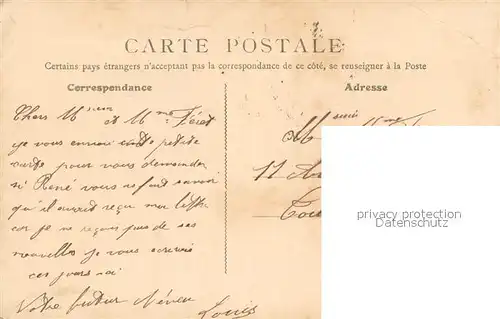 CARTE POSTALE
Certains pays étrangers n'acceptant pas la correspondance de ce côté, se renseigner à la Poste
Correspondance
Chers Msieur et Mme Féret
je vous envoie cette petite
carte pour vous demander
si René vous a fait savoir
qu'il aurait reçu ma lettre
car je ne reçois pas de ses
nouvelles je vous écrirai
ces jours-ci
Votre futur Neveu
Louis
Adresse
et M
11
privacy protection
Datenschutz